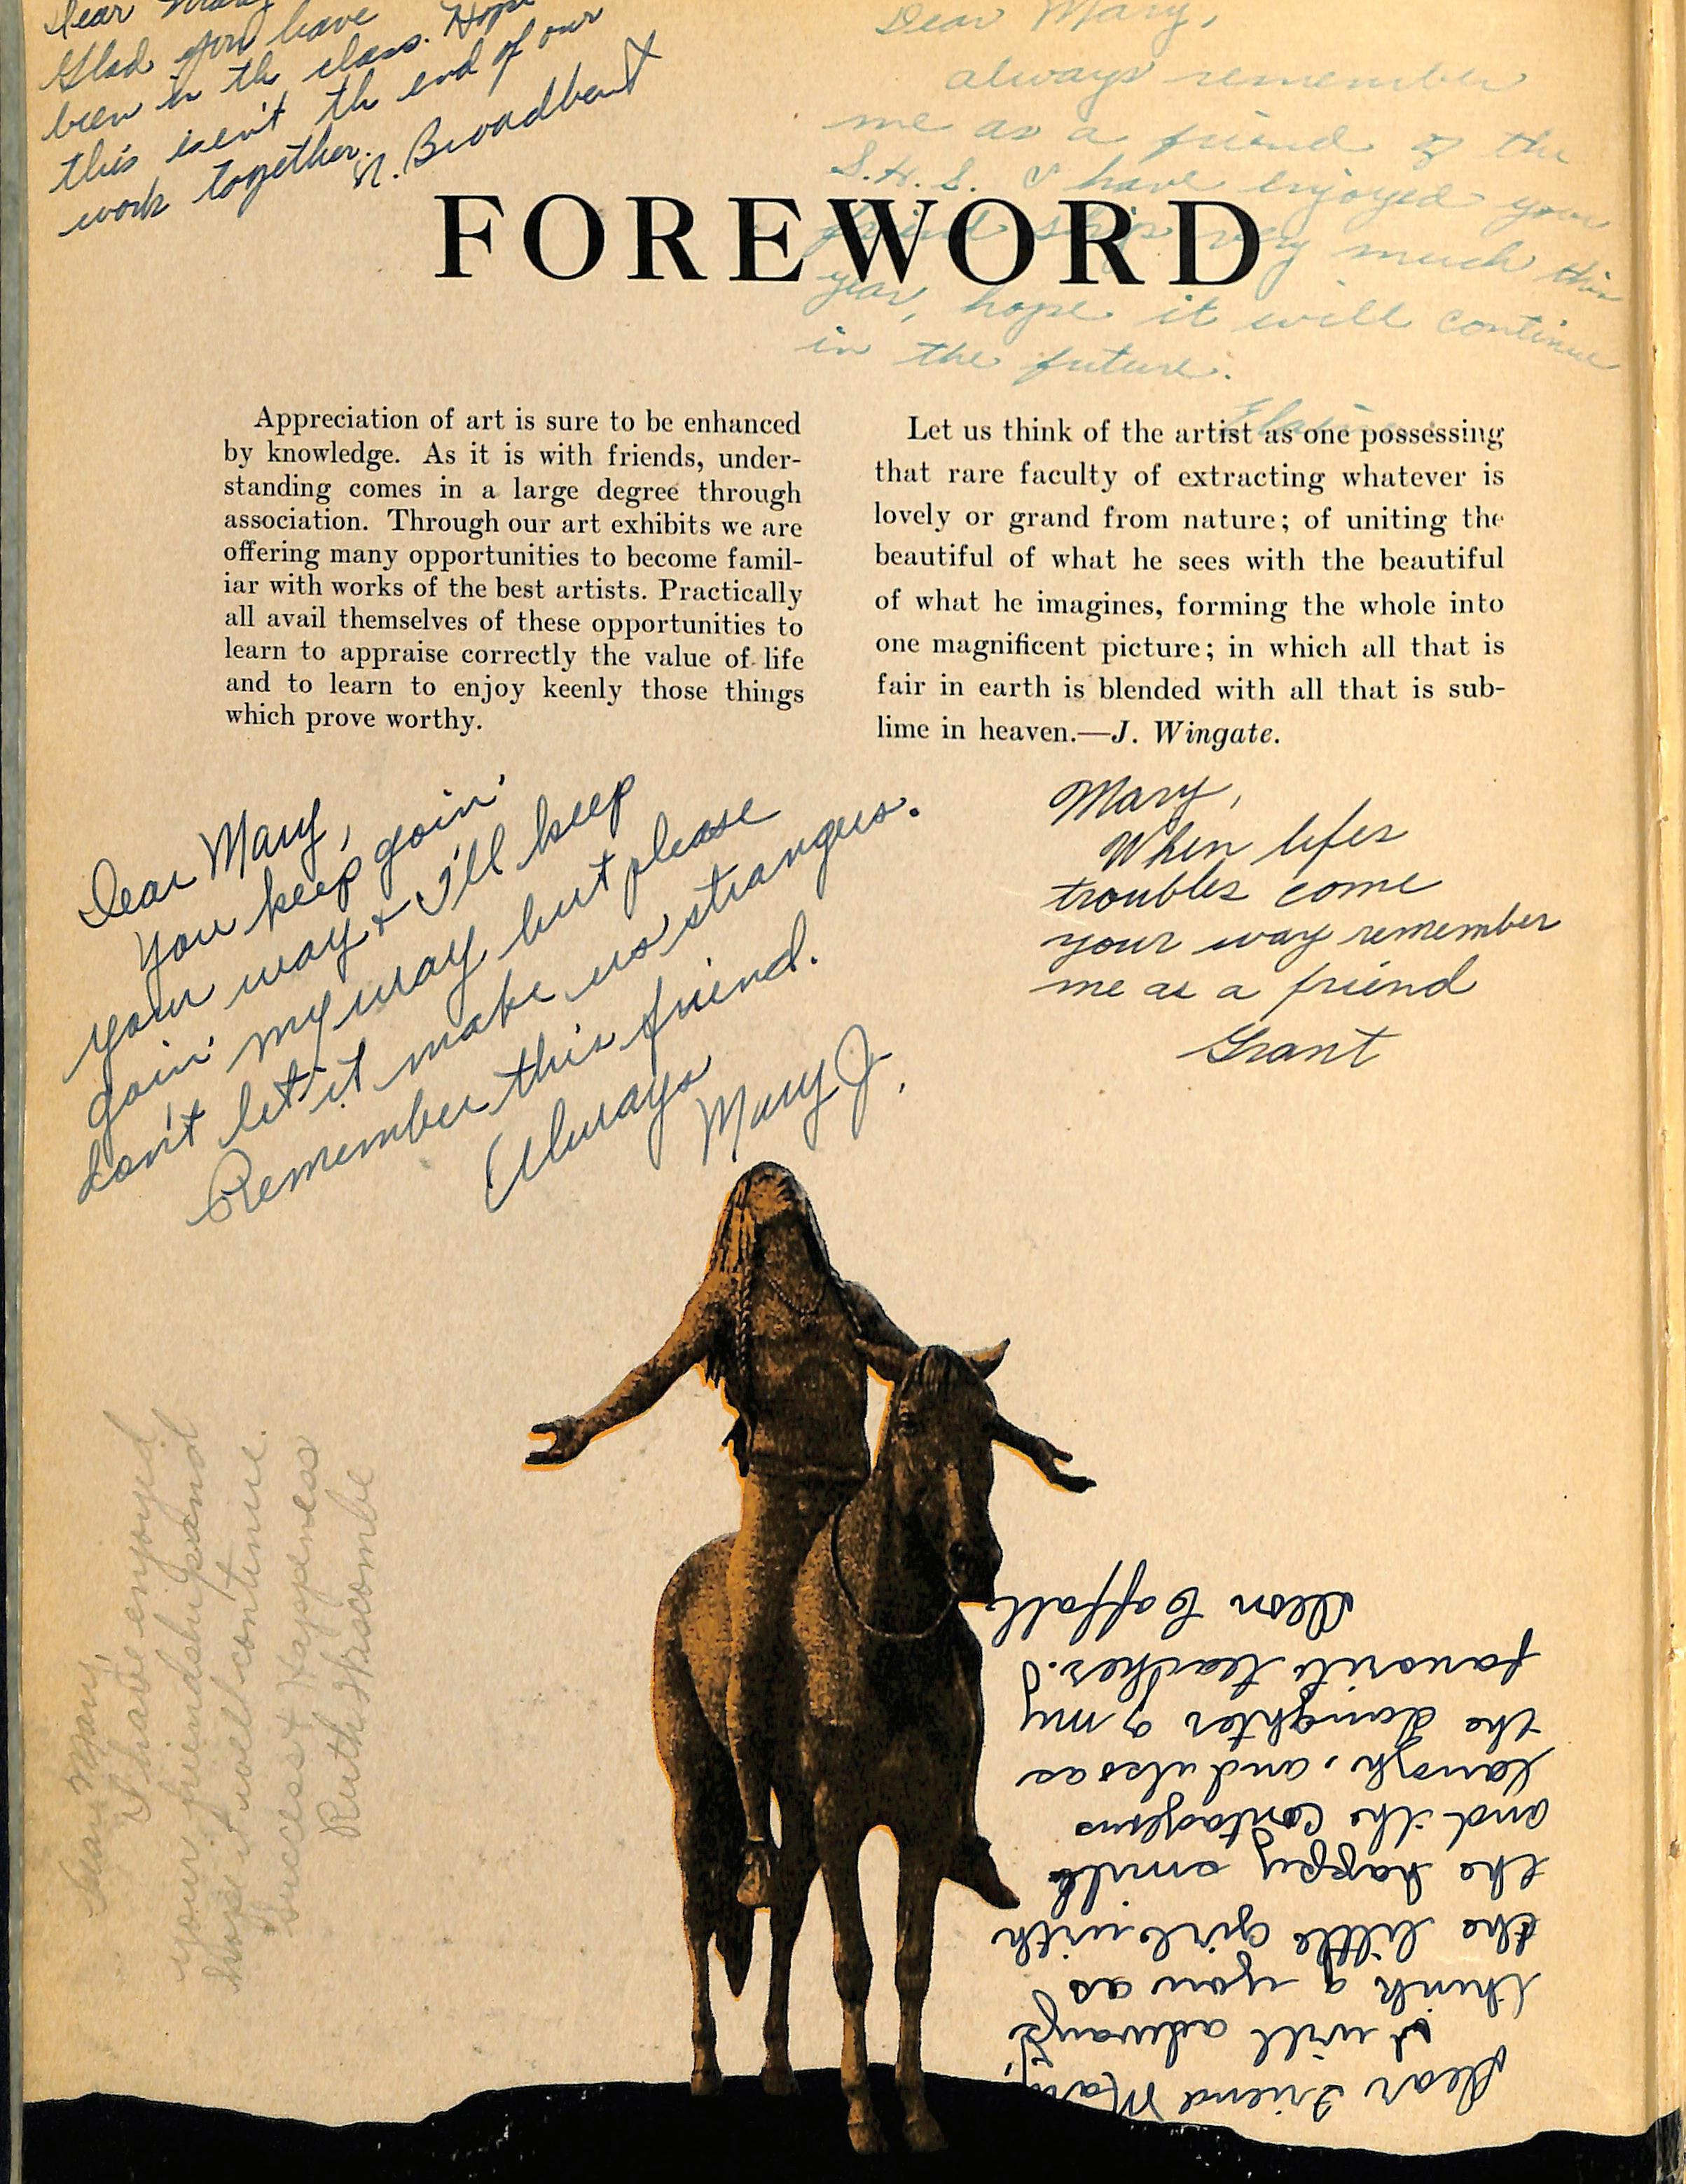 Dear Mary
Glad you have
been in th class. Hope
this isen't th end of our
work together.
N. Broadbent
Dear Mary,
always remember
me as a friend of the
S.H.S. I have enjoyed your
friend ship very much this
year, hope it will continue
in the future.
Elaine
FOREWORD
Appreciation of art is sure to be enhanced
by knowledge. As it is with friends, under-
standing comes in a large degree through
association. Through our art exhibits we are
offering many opportunities to become famil-
iar with works of the best artists. Practically
all avail themselves of these opportunities to
learn to appraise correctly the value of life
and to learn to enjoy keenly those things
which prove worthy.
Let us think of the artist as one possessing
that rare faculty of extracting whatever is
lovely or grand from nature; of uniting the
beautiful of what he sees with the beautiful
of what he imagines, forming the whole into
one magnificent picture; in which all that is
fair in earth is blended with all that is sub-
lime in heaven.—J. Wingate.
Dear Mary,
You keep goin'
your way & I'll keep
goin' my way but please
don't let it make us strangers.
Remember this friend.
Always
Mary J.
Mary,
When lifes
troubles come
your way remember
me as a friend
Grant
Dear Mary,
I have enjoyed
your friendship and
hope it will continue.
Success & Happiness
Ruth Hiscombe
Dear Friend Mary,
I will adways
think of you as
the little girl with
the happy smile
and the contagous
laugh, and also as
the daughter of my
favorite teacher.
Deon Caffall